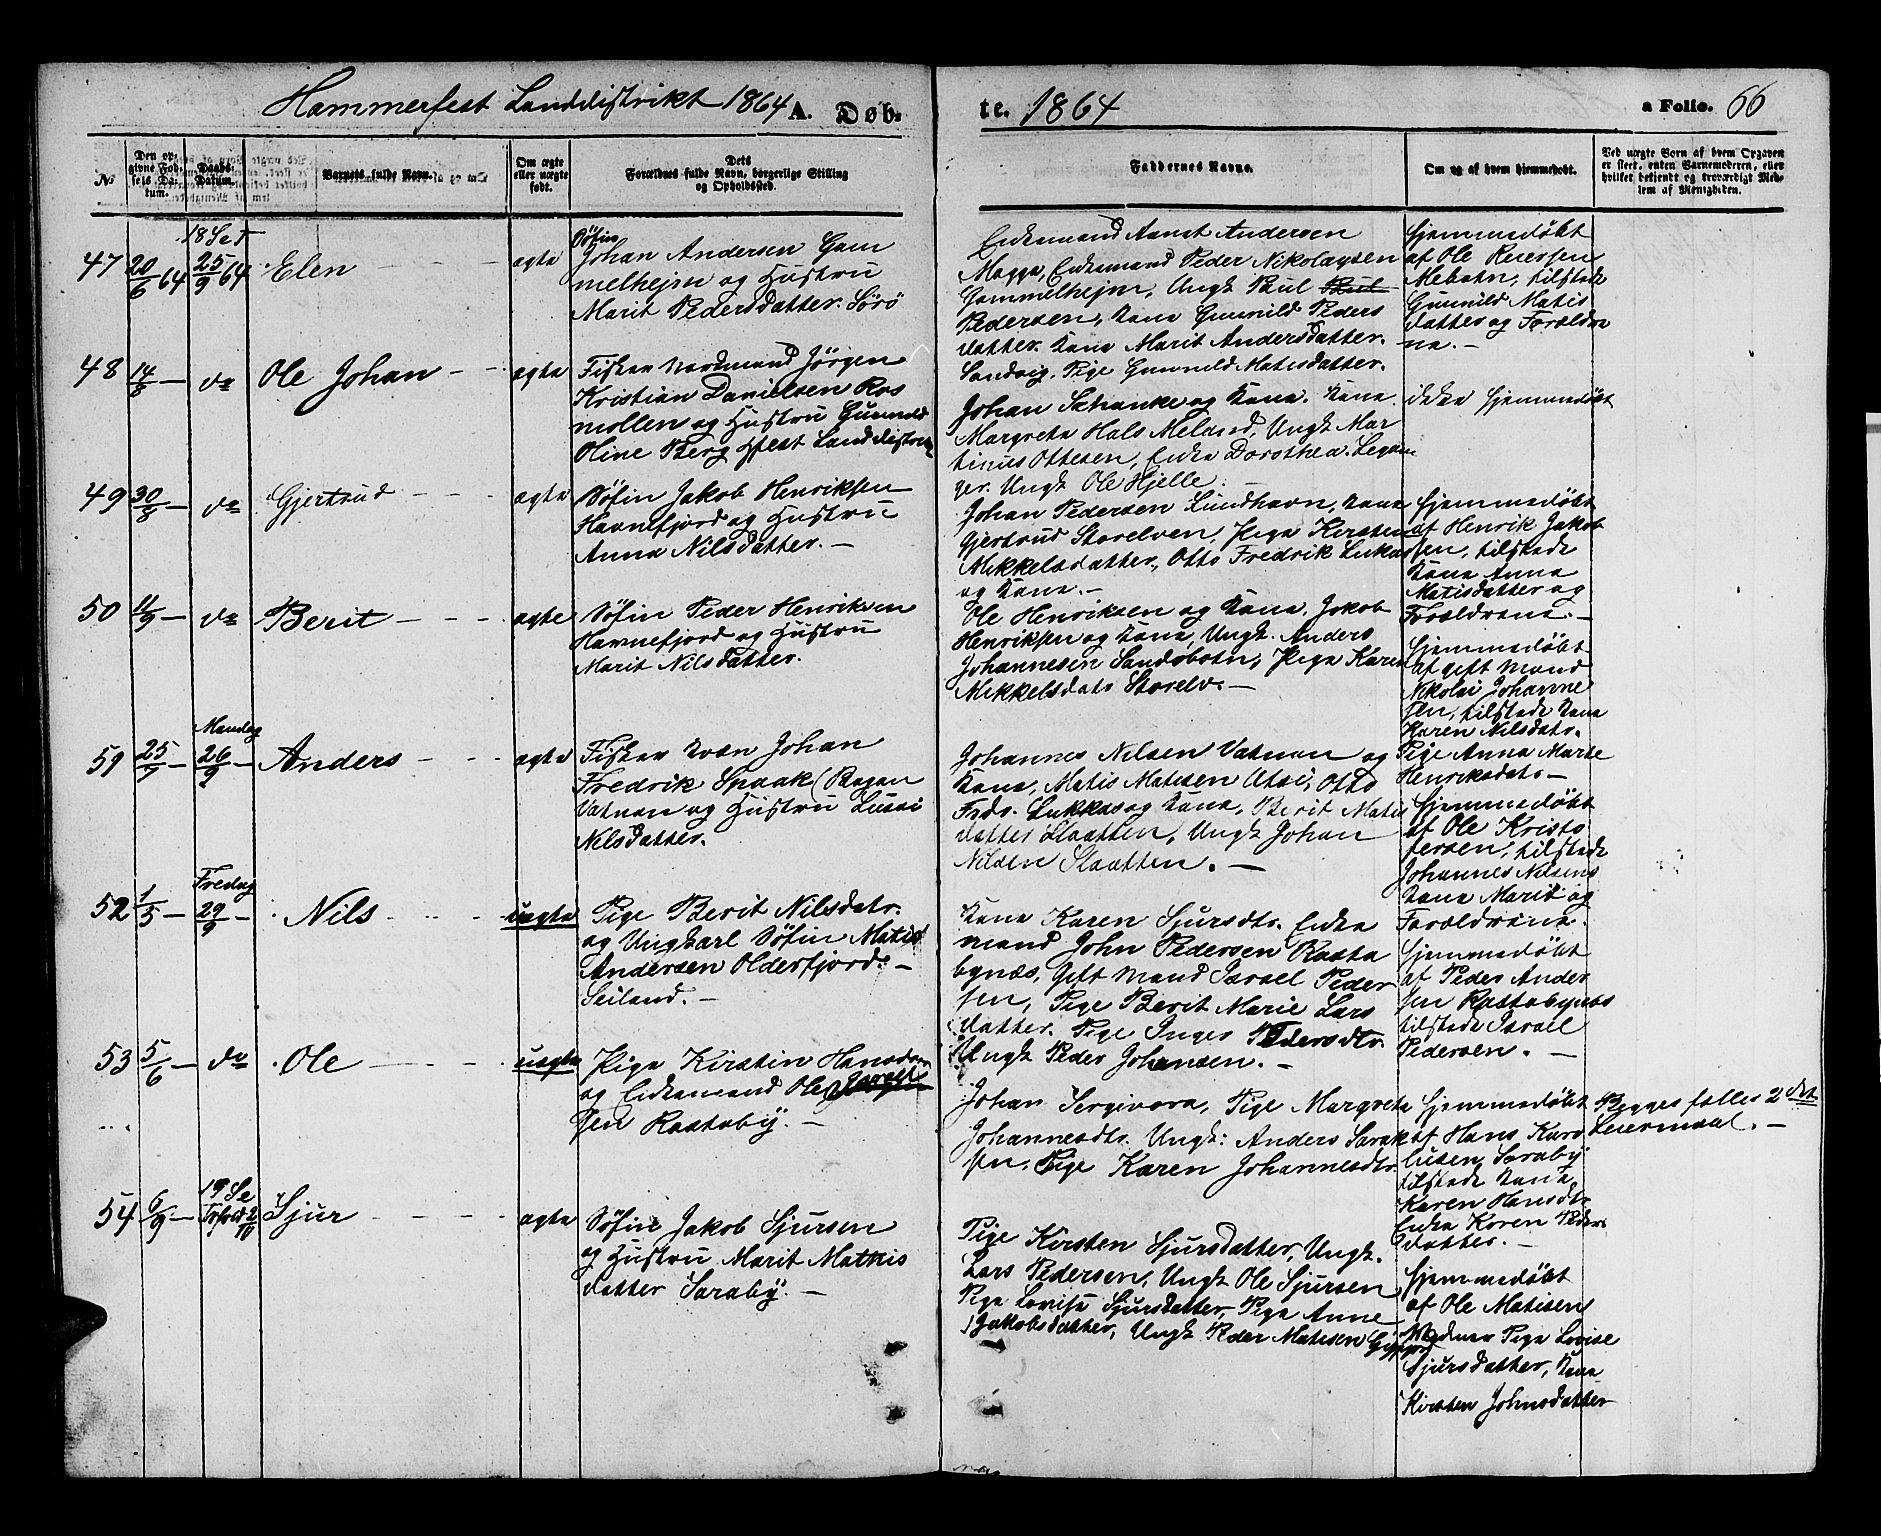 Hammerfest Landdistrikt 1864 A. Døb-
te. 1864 a Folio. 66
No
Den op-
givne Fød-
sels Da-
tum.
Daabs-
Datum.
Barnets fulde Navn.
Om ægte
eller uægte
født.
Dets
Forældres fulde Navn, borgerlige Stilling
og Opholdssted.
Faddernes Navne.
Om og af hvem hjemmedøbt.
Ved uægte Børn af hvem Opgaven
er skeet, enten Barnemoderen, eller
hvilket bekjendt og troværdigt Med-
lem af Menigheden.
47 20/6 64 18 S e T 25/9 64 Elen ægte
Søfin
Johan Andersen Gam
melhejm og Hustru
Marit Pedersdatter Sørø
Enkemand Anders Andersen
Magga, Enkemand Peder Nikolaysen
Gammelhejm, Ungk Paul
Pedersen, Kone Gunnild Peders
datter. Kone Marit Andersdatter.
Sandvig. Pige Gunnild Matisdatter.
Hjemmedøbt
af Ole Reiersen
Mebotn, tilstede
Gunnild Matis
datter og Forældre
ne. -
48 14/8 - do Ole Johan - - ægte
Fisker Nordmand Jørgen
Kristian Danielsen Ros
mollen og Hustru Gunnild
Oline Berg Hfest Landdistrikt
Johan Schanke og Kone. Kone
Margrete Hals Meland, Ungk Mar
tinus Ottesen, Enke Dorothea
Ungk Ole Hjelle. -
ikke hjemmedøbt
49 30/8 - do Gjertrud - - - ægte
Søfin Jakob Henriksen
Havnefjord og Hustru
Anna Nilsdatter. -
Johan Pedersen Lundhavn, Kone
Gjertrud Storelven, Pige Kirsten
Mikkelsdatter, Otto Fredrik Lukas
og Kone. -
Hjemmedøbt
af Henrik Jakob
sen, tilstede
Kone Anna
Matisdatter og
Forældrene. -
50 11/9 - do Berit - - - ægte
Søfin Peder Henriksen
Havnefjord og Hustru
Marit Nilsdatter.
Ole Henriksen og Kone, Jakob
Henriksen og Kone, Ungk. Anders
Johannesen Sandøbotn, Pige Karen
Mikkelsdatr Storelv. -
Hjemmedøbt
af gift Mand
Nikolai Johanne
sen, tilstede Kone
Karen Nilsdatr.
Pige Anna Marte
Henriksdatr -
59 25/9 - Mandag 26/9 - Anders - - - ægte
Fisker Kvæn Johan
Fredrik Spaak (Bagan
Vatnan og Hustru Lussi
Nilsdatter.
Johannes Nilsen Vatnan og
Kone, Matis Matisen Utsi, Otto
Frdr. Lukkas og Kone, Berit Matis
datter Slaatten, Ungk Johan
Nilsen Slaatten. -
Hjemmedøbt
af Ole Kristo
fersen, tilstede
Johannes Nilsens
Kone Marit og
Forældrene.
52 1/5 - Fredag 29/9 - Nils - - - uægte
Pige Berit Nilsdatr.
og Ungkarl Søfin Matis
Andersen Olderfjord. -
Seiland. -
Kone Karen Sjursdtr. Enke
mand John Pedersen Rasta
bynæs, Gift Mand Israel Peder
sen, Pige Berit Marie Lars
datter. Pige Inger Pedersdtr.
Ungk Peder Johansen. -
Hjemmedøbt
af Peder Ander
sen Rastabynæs
tilstede Israel
Pedersen. -
53 5/6 - do Ole - - - uægte
Pige Kirstin Hansdatter
og Enkemand Ole Israel
sen Rastaby. -
Johan Sergivara, Pige Margrete
Johannesdtr. Ungk: Anders Israk
sen, Pige Karen Johannesdtr.
Hjemmedøbt
af Hans Karo
lusen Saraby
tilstede Kone
Karen Hansdtr
Enke Karen Peders
datter. -
Begges fælles 2 det
Leiermaal. -
54 6/9 - 19 S e Trefold 2/10 Sjur - - - ægte
Søfin Jakob Sjursen
og Hustru Marit Mathis
datter Saraby. -
Pige Kirsten Sjursdatter, Ungk.
Lars Pedersen, Ungk Ole Sjursen
Pige Lovise Sjursdatter, Pige Anne
Jakobsdatter, Ungk Peder Matisen
Hjemmedøbt
af Ole Matisen
Pige Lovise
Sjursdatter, Kone
Kirsten Johnsdatter